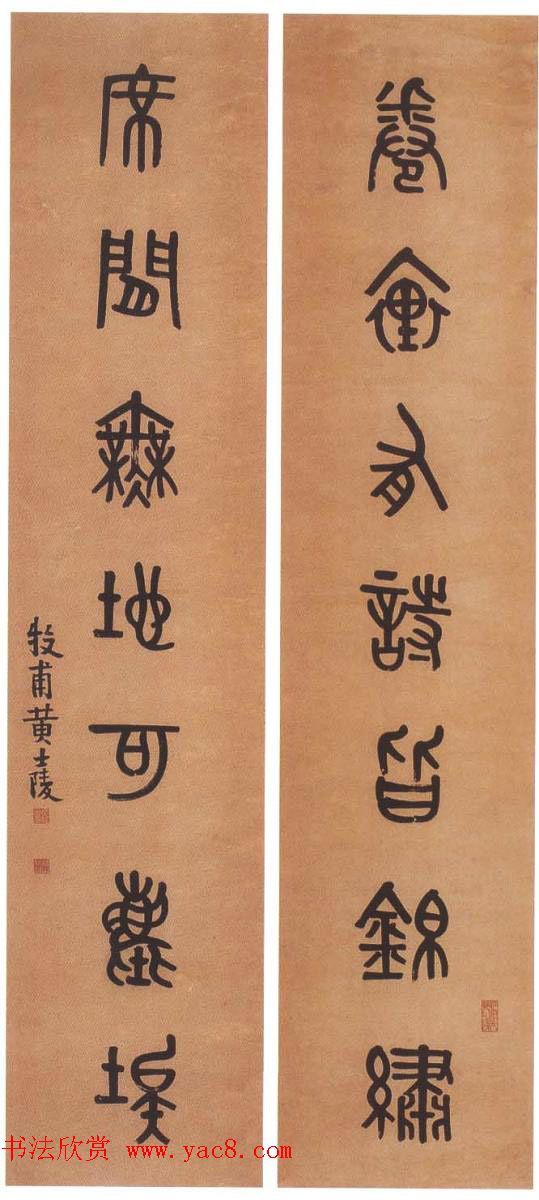 卷有詩皆錦繡
席無地可塵埃
牧甫黃士陵
书法欣赏 www.yac8.com